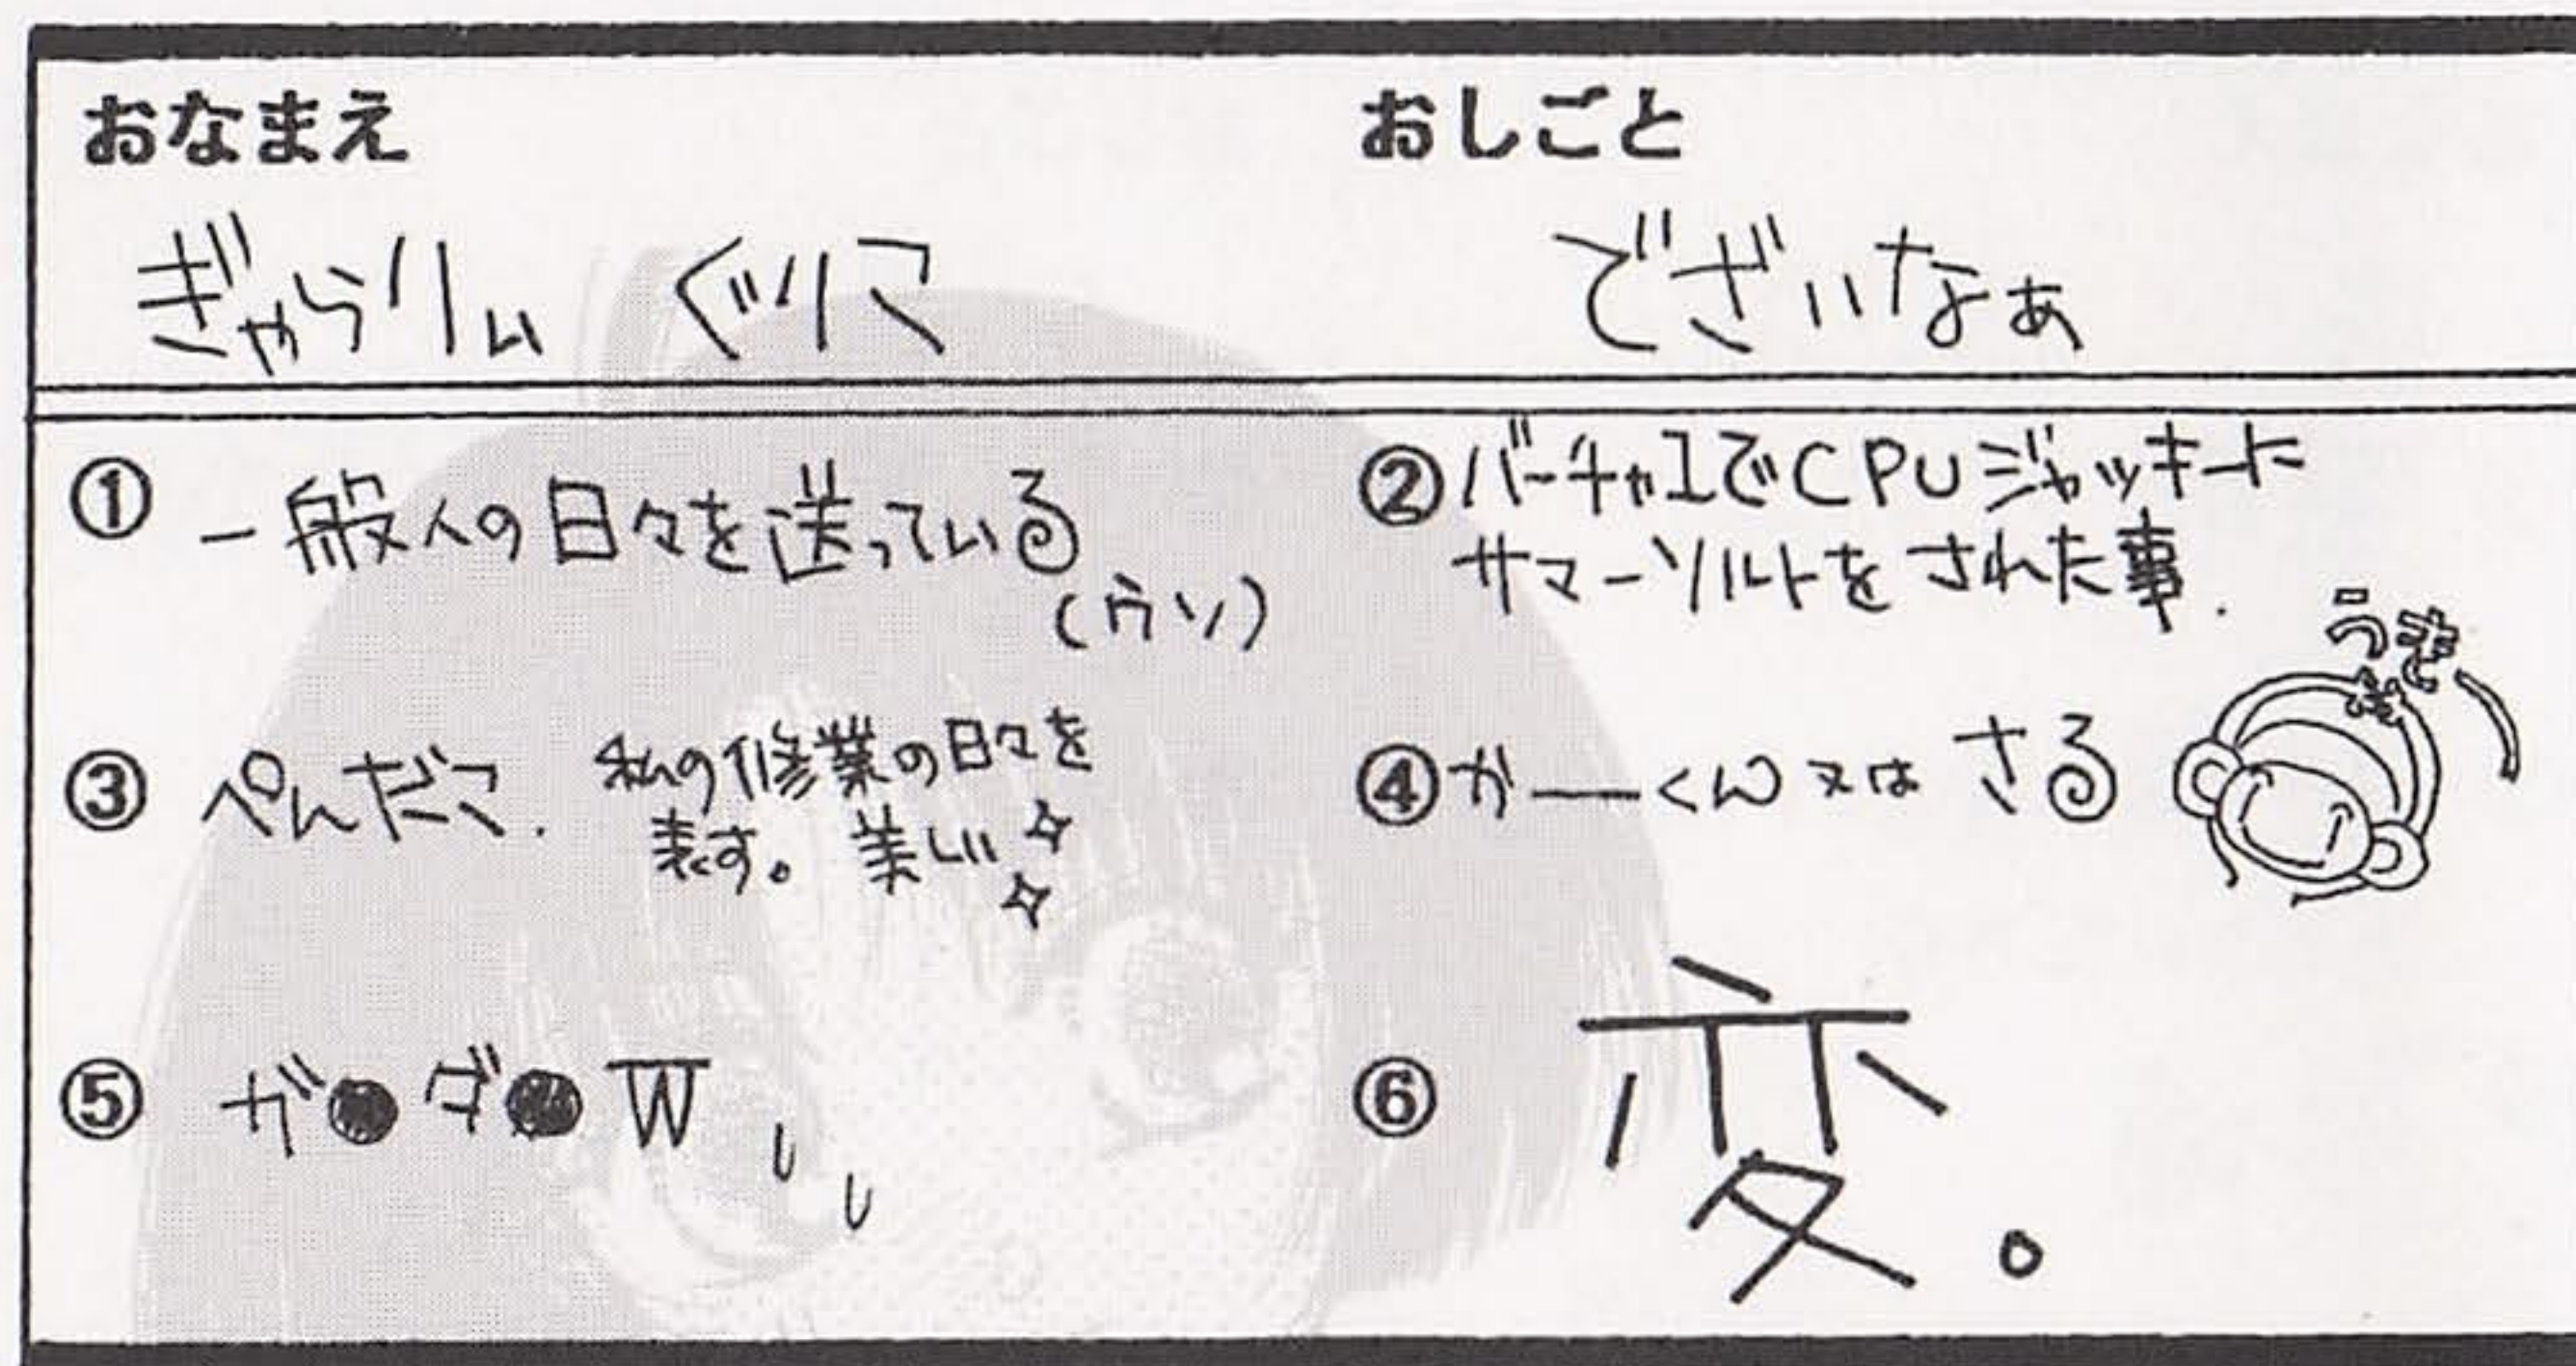 おなまえ
ぎゃらりぃ ぐりこ
おしごと
でざいなぁ
① 一般人の日々を送っている
(ウソ)
② バーチャ1でCPUジャッキーに
サマーソルトをされた事.
③ ぺんだこ. 私の修業の日々を
表す。美しい
④ かーくん又は さる
うきー
⑤ ガ●ダ●W
⑥ 変。